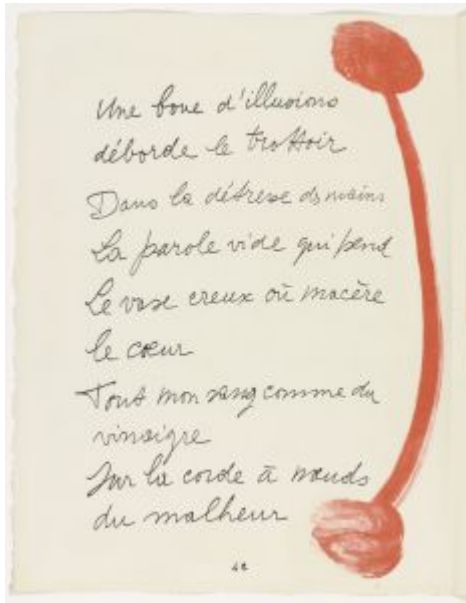 Une boue d'illusions
déborde le trottoir
Dans la détresse des mains
La parole vide qui pend
Le vase creux où macère
le cœur
Tout mon sang comme du
vinaigre
Sur la corde à nœuds
du malheur
42